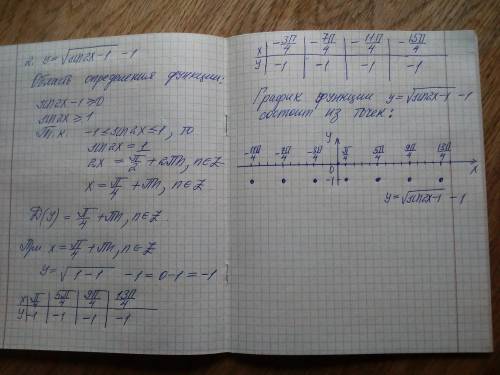 2. y = √(sin2x-1) -1
Область определения функции:
sin2x-1⩾0
sin2x⩾1
Т.к. -1≤sin2x≤1, то
sin2x=1
2x = π/2 + 2πn, n∈Z
x = π/4 + πn, n∈Z
D(y) = π/4 + πn, n∈Z
При x = π/4 + πn, n∈Z
y = √(1-1) -1 = 0-1 = -1
x | π/4 | 5π/4 | 9π/4 | 13π/4
y | -1 | -1 | -1 | -1
x | -3π/4 | -7π/4 | -11π/4 | -15π/4
y | -1 | -1 | -1 | -1
График функции y = √(sin2x-1) -1
состоит из точек:
y
-11π/4 -7π/4 -3π/4 π/4 5π/4 9π/4 13π/4
0 x
-1
y = √(sin2x-1) -1